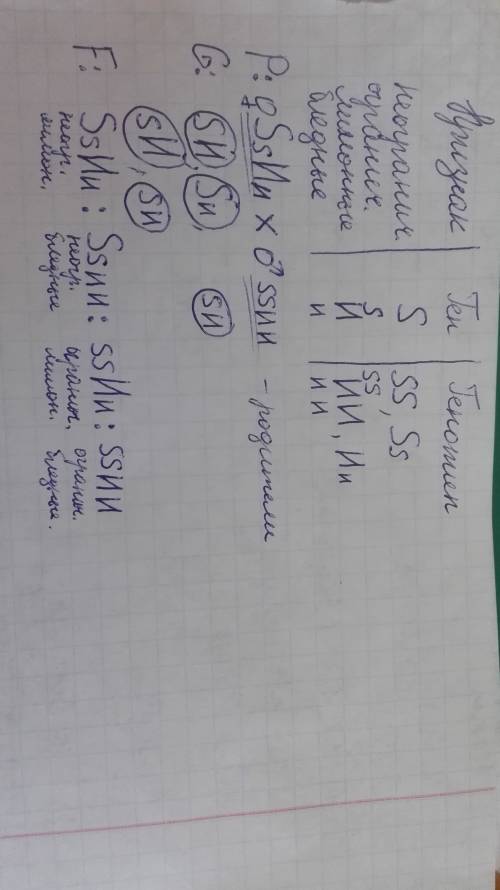 Признак | Ген | Генотип
неогранич. S SS, Ss
огранич. s ss
лимонные И ИИ, Ии
бледные и ии
P: ♀ SsИи × ♂ ssии - родители
G: SИ, Sи, sи
sИ, sи
F: SsИи : Ssии : ssИи : ssии
неогр. неогр. огранич, огранич.
лимон, бледные лимон. бледные.